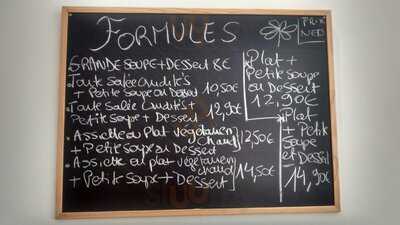 FORMULES
PRIX
NED
GRANDE SOUPE + DESSERT 8€
Tarte Salée Crudités
+ Petite Soupe ou Dessert 10,50€
Tarte Salée Crudités +
Petite Soupe + Dessert 12,90€
Assiette ou Plat végétarien
chaud
+ Petite Soupe ou Dessert
12,50€
Assiette ou plat végétarien
chaud
+ Petite Soupe + Dessert
14,50€
Plat +
Petite Soupe
ou Dessert
12,90€
Plat
+ Petite
Soupe
et Dessert
14,90€